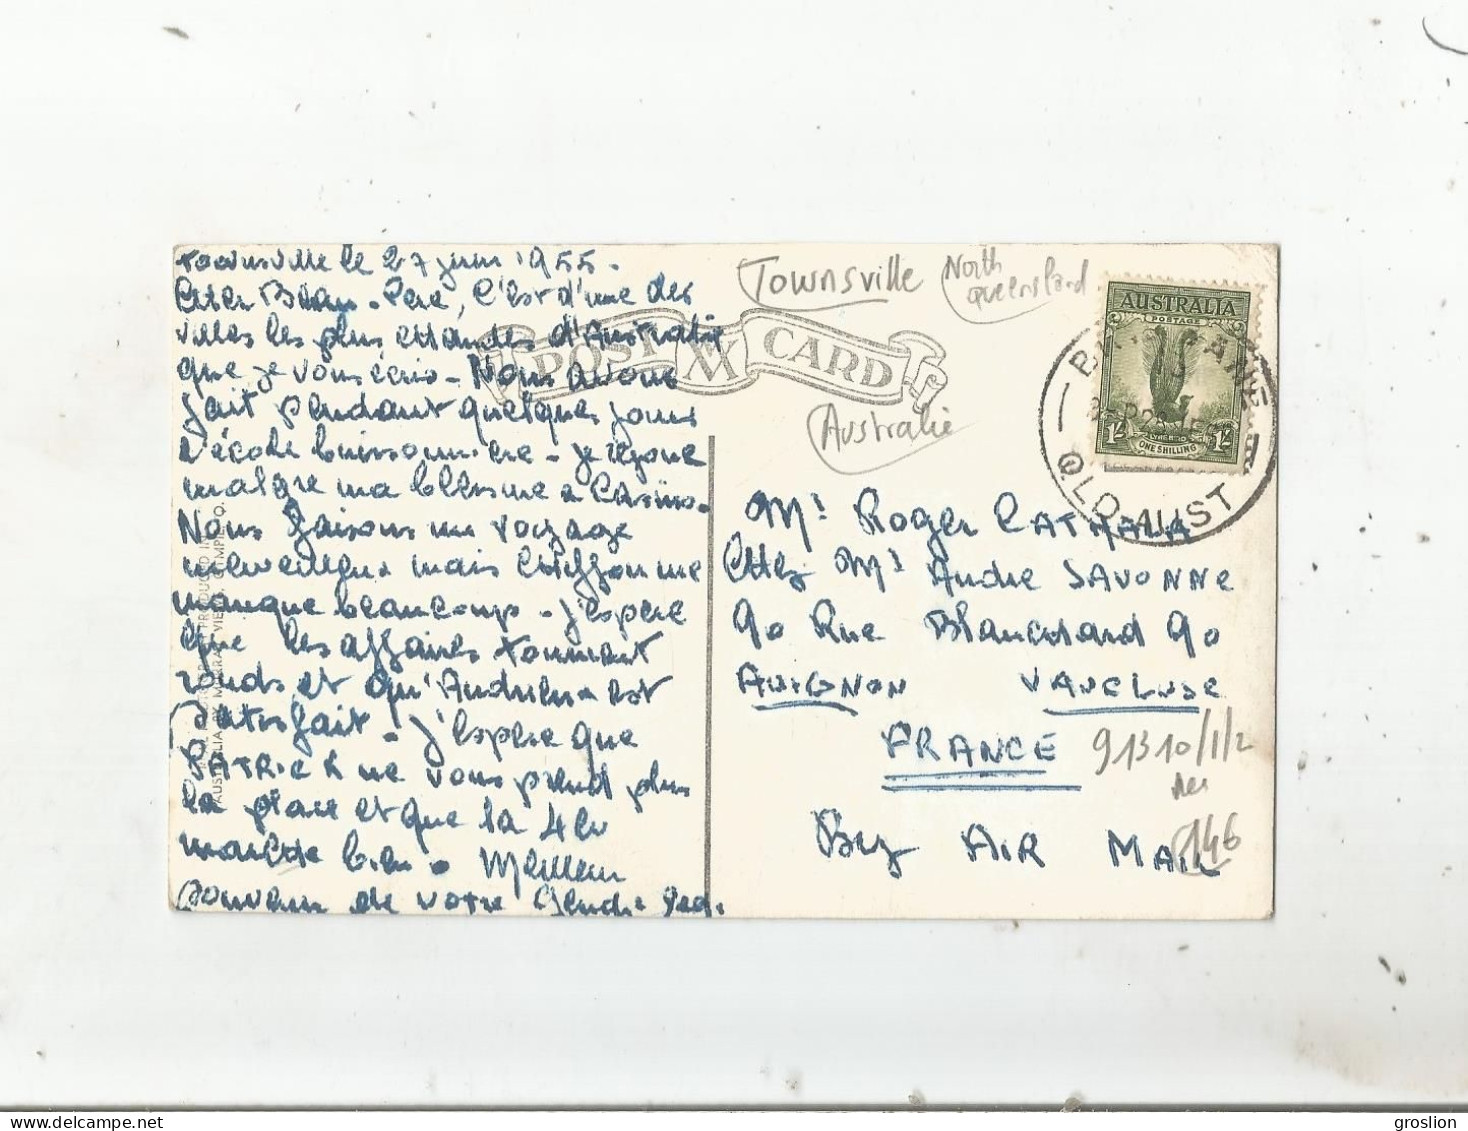 Townsville le 27 juin 1955.
Cher Beau-Père, C'est d'une des
villes les plus chaudes d'Australie
que je vous écris - Nous avons
fait pendant quelques jours
l'école buissonnière - je rejoue
malgré ma blessure a Casino.
Nous faisons un voyage
merveilleux mais
manque beaucoup - j'espère
que les affaires tournent
ronds et qu' est
satisfait - j'espère que
PATRICK ne vous prend plus
la place et que la 4 cv
marche bien. Meilleur
souvenir de votre Gendre
POST CARD
Townsville
North
Queensland
Australie
AUSTRALIA
POSTAGE
1/- LYREBIRD 1/-
ONE SHILLING
BRISBANE
QLD. AUST
Mr Roger CATHALA
Chez Mr André SAVONNE
90 Rue Blanchard 90
AVIGNON VAUCLUSE
FRANCE
By AIR MAIL
91310/1/2
146
groslion